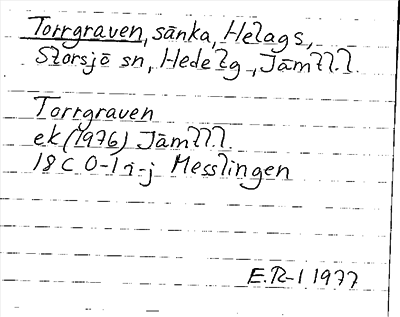 Torrgraven, sänka, Helags,
Storsjö sn, Hedeg, Jämtl.
Torrgraven
ek (1976) Jämtl.
18 C 0-1 i-j Messlingen
E.R-I 1977